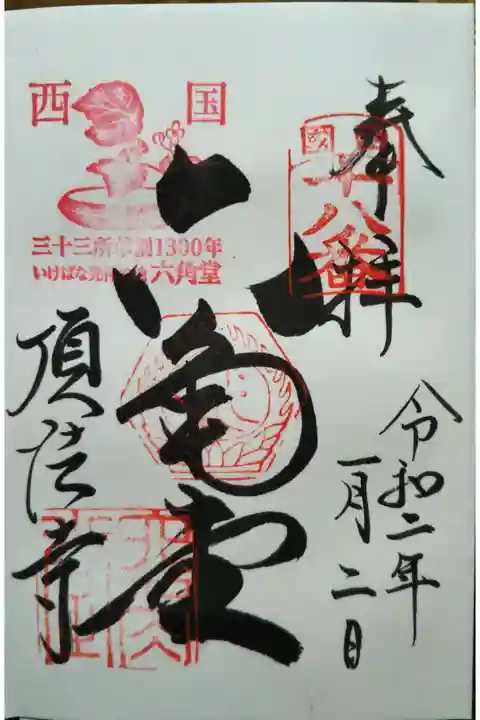 奉拝
西国十八番
令和二年
一月二日
六角堂
西国
三十三所草創1300年
いけばな発祥の地 六角堂
頂法寺